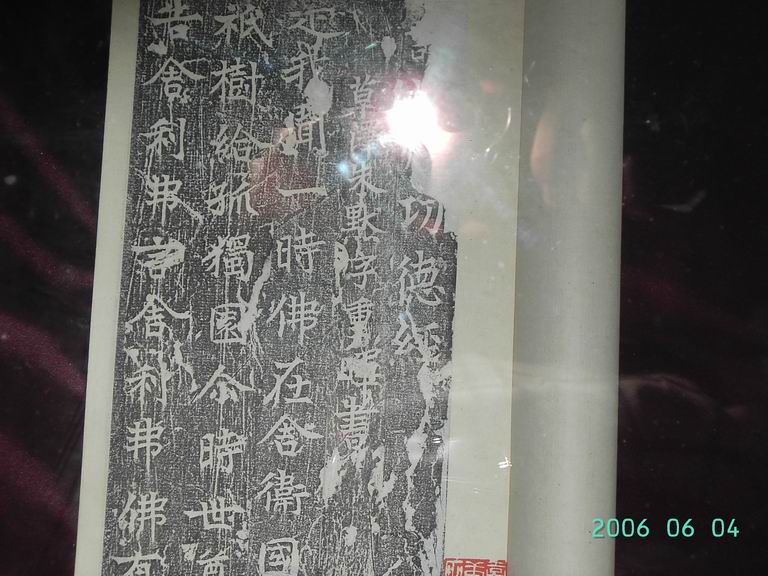 功德經
草 朱默字重 書
是我聞一時佛在舍衛國
祇樹給孤獨園尒時世尊
告舍利弗言舍利弗佛有
2006 06 04